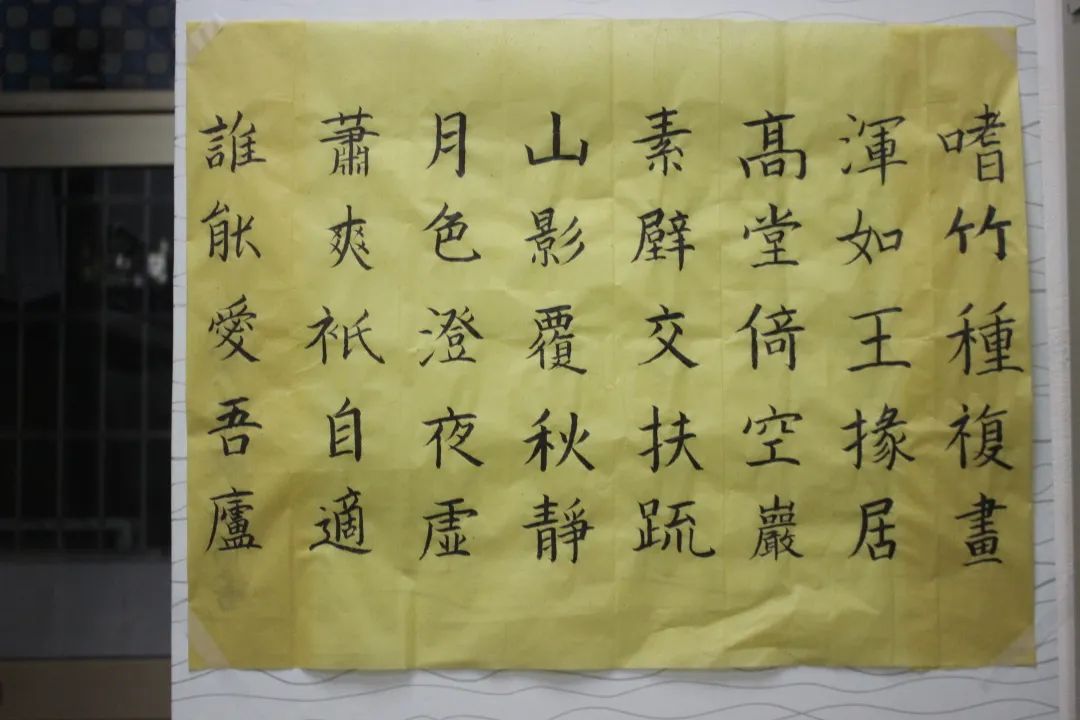 嗜竹種複畫
渾如王掾居
高堂倚空巖
素壁交扶疏
山影覆秋靜
月色澄夜虛
蕭爽祇自適
誰能愛吾廬